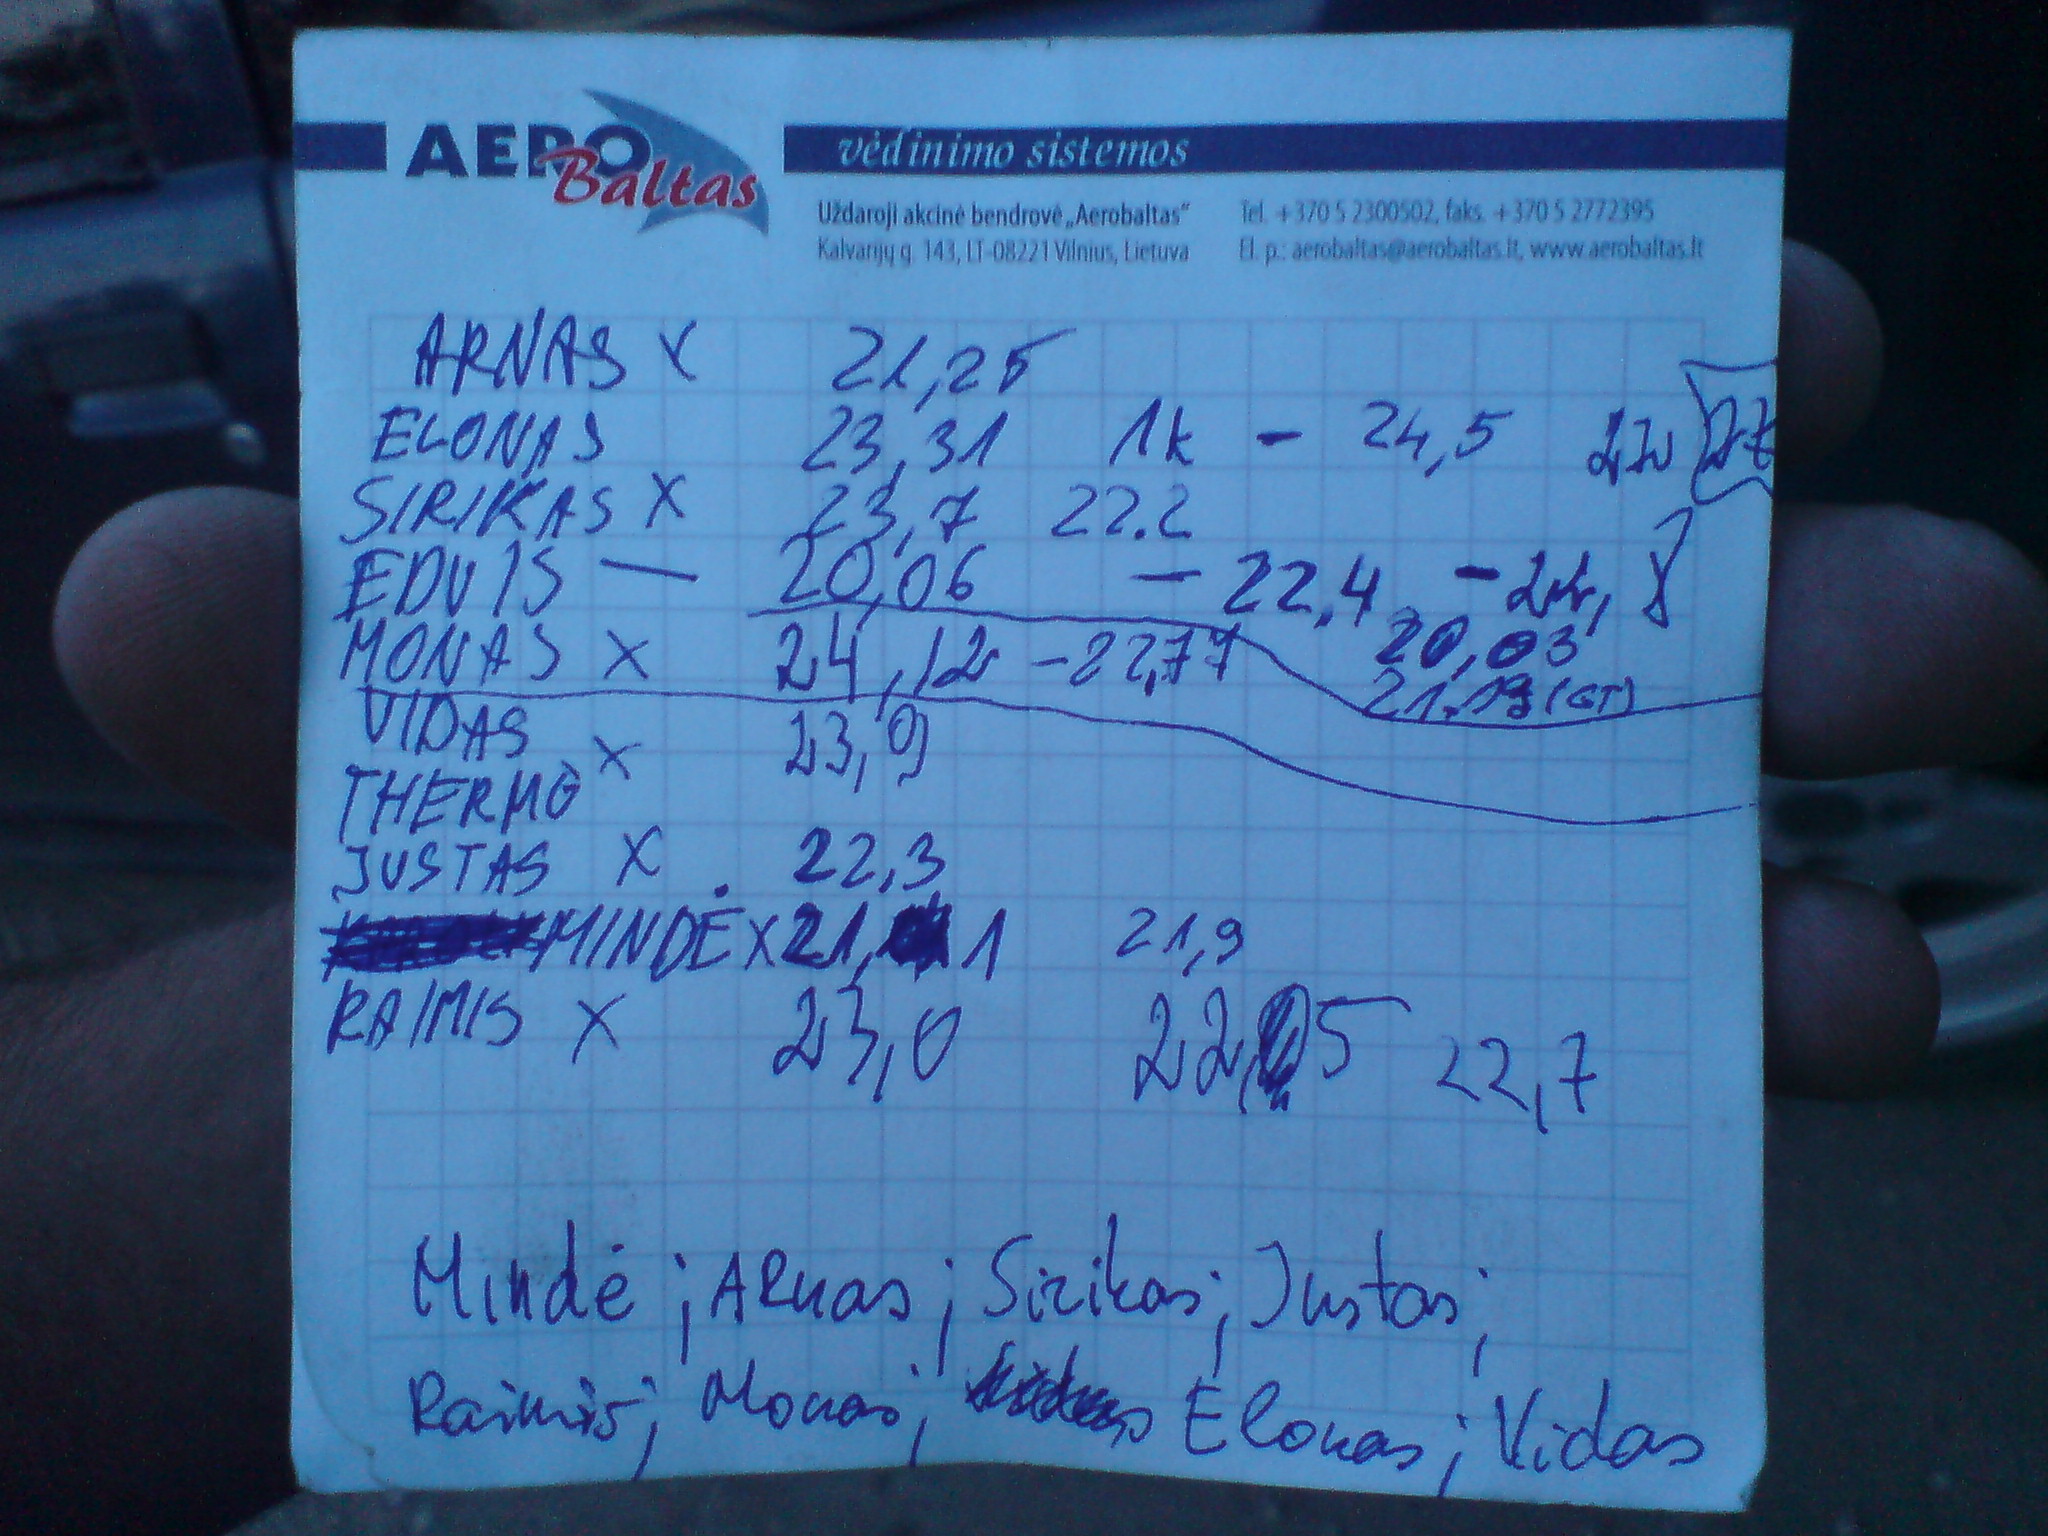 AERO Baltas vėdinimo sistemos
Uždaroji akcinė bendrovė „Aerobaltas“ Tel. +370 5 2300502, faks. +370 5 2772395
Kalvarijų g. 143, LT-08221 Vilnius, Lietuva El. p.: aerobaltas@aerobaltas.lt, www.aerobaltas.lt
ARNAS X 21,25
ELONAS 23,31 1k - 24,5
SIRIKAS X 23,7 22.2
EDVIS — 20,06 - 22,4
20,03
MONAS X 24,12 -22,77
21.19 (GT)
VIDAS X 23,9
THERMO
JUSTAS X 22,3
MINDĖ X 21,1 21,9
RAIMIS X 23,0 22,5 22,7
Mindė; ARnas; Sirikas; Justas;
Raimis; Monas; Elonas; Vidas